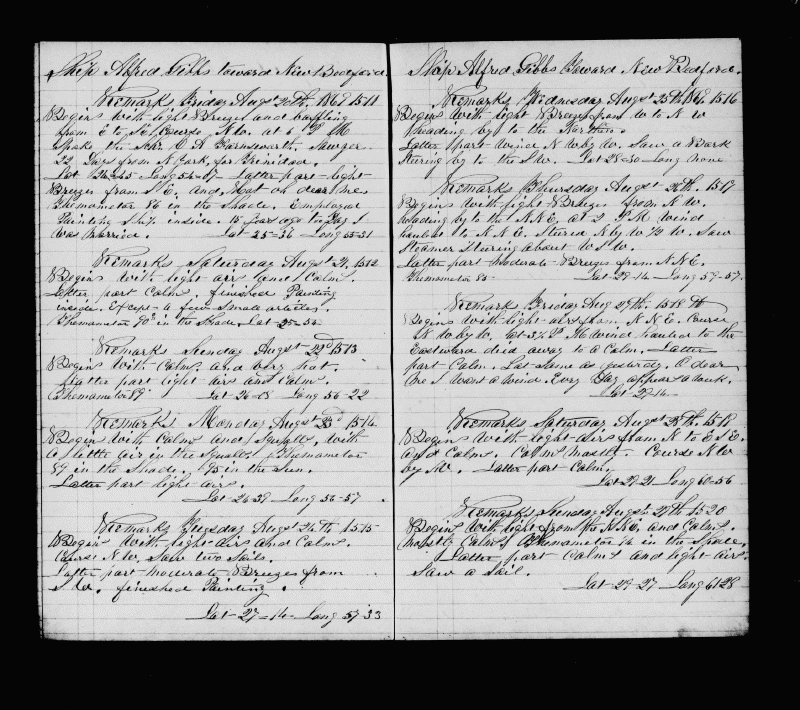 Ship Alfred Gibbs toward New Bedford.
Remarks Friday Augst 20th, 1869 1511
Begins With light Breeze and baffling
from E to S.E. Course N.W. at 5 P M
Spoke the Schr.
22 Days from N York, for Trinidad.
Lat Long 54-07 Latter part light
Breeze from S E. and hot oh dear me
Themameter 86 in the Shade. Employed
Painting Ship inside. 15 years ago to day I
Was Married. Lat 25-36 Long 55-31
Remarks Saturday Augst 21, 1512
Begins With light airs and Calm.
Latter part Calm. finished Painting
inside. Except a few Small articles.
Themameter 90° in the Shade. Lat 25-55
Remarks Sunday Augst 22d 1513
Begins With Calm and very hot.
Latter part light airs and Calm.
Themameter 89° Lat 26-08 Long 56-22
Remarks Monday Augst 23d 1514
Begins With Calms and Squalls, With
a little air in the Squalls Themameter
89 in the Shade. 95 in the Sun.
Latter part light airs.
Lat 26-38 Long 56-57.
Remarks Tuesday Augst 24th, 1515
Begins With light airs and Calms.
Course N.W. Saw two Sails.
Latter part moderate Breezes from
S W. finished Painting.
Lat 27-14 Long 57-33
Ship Alfred Gibbs Toward New Bedford.
Remarks Wednesday Augst 25th 1869 1516
Begins With light Breeze from W to N W
heading by to the Northerd.
Latter part Wind N W by W. Saw a Bark
Stering by to the S W. Lat 28-30 Long None
Remarks Thursday Augst 26th, 1517
Begins With light Breeze from N W.
heading by to the N.N.E. at 2 P.M. Wind
hauled to N N E. Stered N by W ½ W. Saw
Steamer Stering about W S W.
Latter part Moderate Breezes from N.N.E.
Themameter 85 Lat 29-14 Long 59-57.
Remarks Friday Aug 27th. 1518
Begins With light airs from N N E. Course
N W by W. at 3½ P M Wind hauled to the
Eastward died away to a Calm. Latter
part Calm. Lat Same as yesterdy. O dear
me I want a Wind. Evry Day appears a Week.
Lat 29-14
Remarks Saturday Augst 28th. 1519
Begins With light airs from N to E S E.
and Calms. Calms mostly. Course N W
by W. Latter part Calm.
Lat 29-21 Long 60-56
Remarks Sunday Augst 29th 1520
Begins With light from the N.N.E. and Calms.
mostle Calms Themameter in the Shade.
Latter part Calms and light airs.
Saw a Sail.
Lat 29-27 Long 61 28